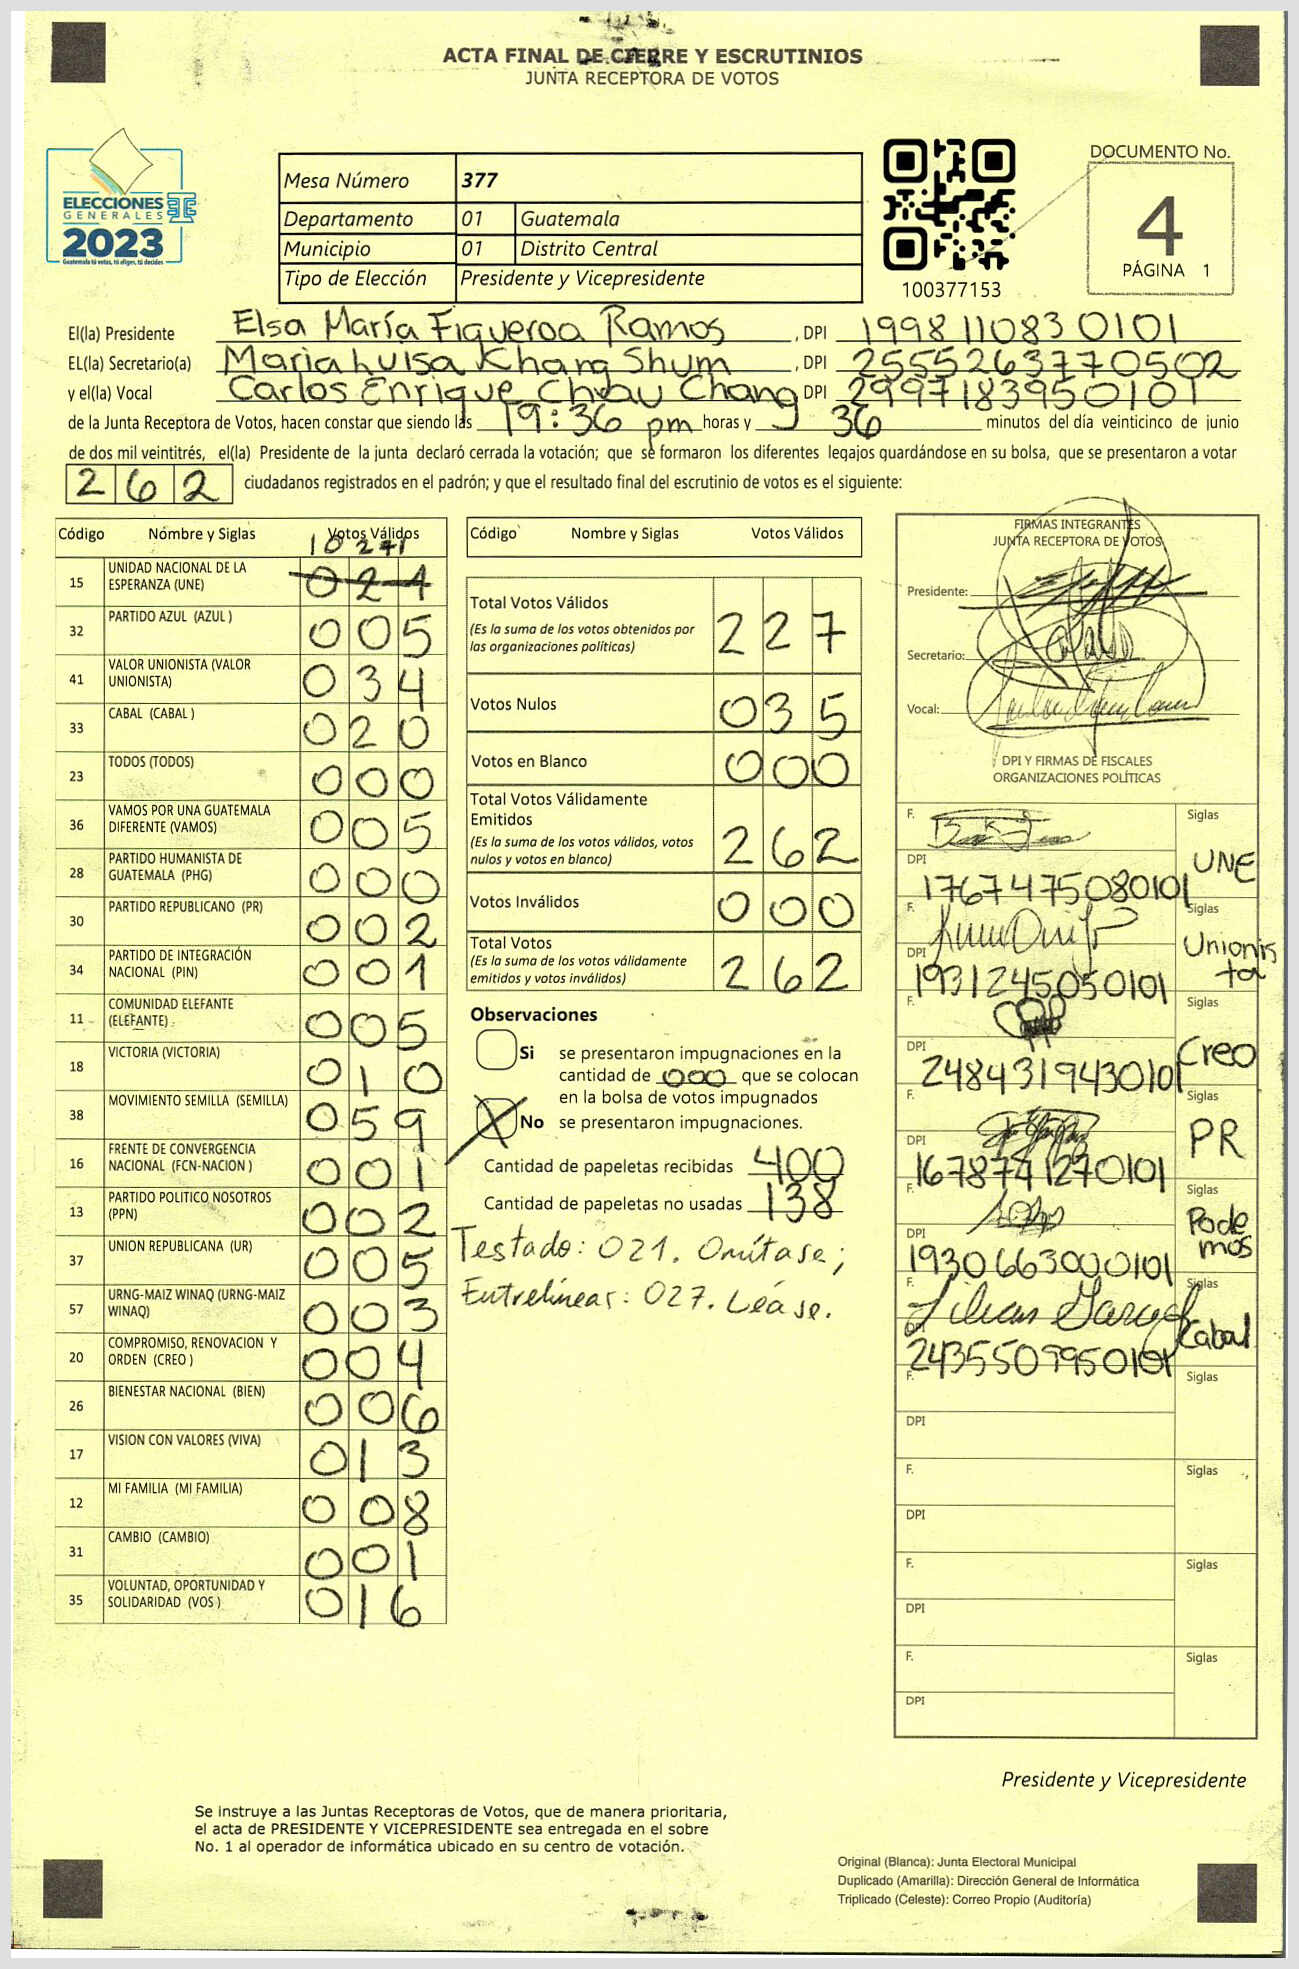 ACTA FINAL DE CIERRE Y ESCRUTINIOS
JUNTA RECEPTORA DE VOTOS
ELECCIONES
GENERALES
2023
Guatemala tú votas, tú eliges, tú decides
Mesa Número 377
Departamento 01 Guatemala
Municipio 01 Distrito Central
Tipo de Elección Presidente y Vicepresidente
100377153
DOCUMENTO No.
4
PÁGINA 1
El(la) Presidente Elsa María Figueroa Ramos, DPI 1998110830101
EL(la) Secretario(a) Maria Luisa Khang Shum, DPI 2555263770502
y el(la) Vocal Carlos Enrique Chang DPI 2997183950101
de la Junta Receptora de Votos, hacen constar que siendo las 19:36 pm horas y 36 minutos del día veinticinco de junio
de dos mil veintitrés, el(la) Presidente de la junta declaró cerrada la votación; que se formaron los diferentes legajos guardándose en su bolsa, que se presentaron a votar
262 ciudadanos registrados en el padrón; y que el resultado final del escrutinio de votos es el siguiente:
Código Nombre y Siglas Votos Válidos
15 UNIDAD NACIONAL DE LA
ESPERANZA (UNE)
32 PARTIDO AZUL (AZUL ) 005
41 VALOR UNIONISTA (VALOR
UNIONISTA) 034
33 CABAL (CABAL ) 020
23 TODOS (TODOS) 000
36 VAMOS POR UNA GUATEMALA
DIFERENTE (VAMOS) 005
28 PARTIDO HUMANISTA DE
GUATEMALA (PHG) 000
30 PARTIDO REPUBLICANO (PR) 002
34 PARTIDO DE INTEGRACIÓN
NACIONAL (PIN) 001
11 COMUNIDAD ELEFANTE
(ELEFANTE) 005
18 VICTORIA (VICTORIA) 010
38 MOVIMIENTO SEMILLA (SEMILLA) 059
16 FRENTE DE CONVERGENCIA
NACIONAL (FCN-NACION ) 001
13 PARTIDO POLITICO NOSOTROS
(PPN) 002
37 UNION REPUBLICANA (UR) 005
57 URNG-MAIZ WINAQ (URNG-MAIZ
WINAQ) 003
20 COMPROMISO, RENOVACION Y
ORDEN (CREO ) 004
26 BIENESTAR NACIONAL (BIEN) 006
17 VISION CON VALORES (VIVA) 013
12 MI FAMILIA (MI FAMILIA) 008
31 CAMBIO (CAMBIO) 001
35 VOLUNTAD, OPORTUNIDAD Y
SOLIDARIDAD (VOS ) 016
Código Nombre y Siglas Votos Válidos
Total Votos Válidos 227
(Es la suma de los votos obtenidos por
las organizaciones políticas)
Votos Nulos 035
Votos en Blanco 000
Total Votos Válidamente
Emitidos 262
(Es la suma de los votos válidos, votos
nulos y votos en blanco)
Votos Inválidos 000
Total Votos 262
(Es la suma de los votos válidamente
emitidos y votos inválidos)
Observaciones
Si se presentaron impugnaciones en la
cantidad de 000 que se colocan
en la bolsa de votos impugnados
X No se presentaron impugnaciones.
Cantidad de papeletas recibidas 400
Cantidad de papeletas no usadas 138
Testado: 021. Omítase;
Entrelínear: 027. Léase.
FIRMAS INTEGRANTES
JUNTA RECEPTORA DE VOTOS
Presidente:
Secretario:
Vocal:
DPI Y FIRMAS DE FISCALES
ORGANIZACIONES POLÍTICAS
F. Siglas UNE
DPI 1767475080101
F. Siglas Unionis
ta
DPI 1931245050101
F. Siglas Creo
DPI 2484319430101
F. Siglas PR
DPI
F. Siglas Pode
mos
DPI 1930663000101
F. Siglas Cabal
DPI 2435509950101
F. Siglas
DPI
F. Siglas
DPI
F. Siglas
DPI
F. Siglas
DPI
Presidente y Vicepresidente
Se instruye a las Juntas Receptoras de Votos, que de manera prioritaria,
el acta de PRESIDENTE Y VICEPRESIDENTE sea entregada en el sobre
No. 1 al operador de informática ubicado en su centro de votación.
Original (Blanca): Junta Electoral Municipal
Duplicado (Amarilla): Dirección General de Informática
Triplicado (Celeste): Correo Propio (Auditoría)